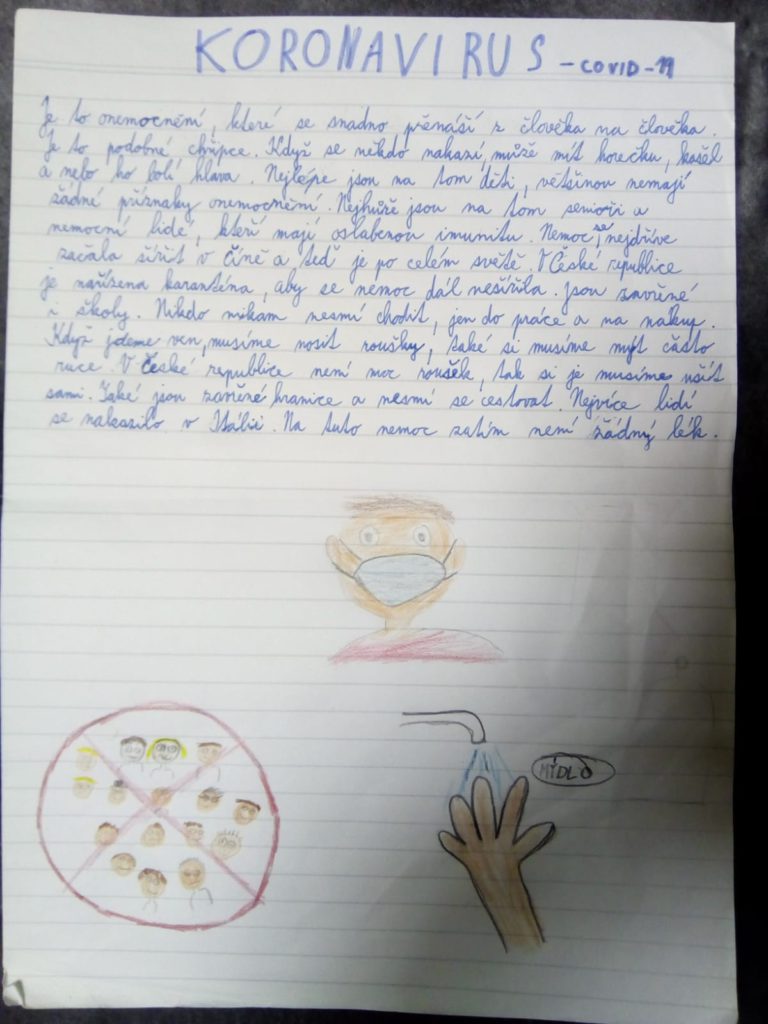 KORONAVIRUS - COVID - 19
Je to onemocnění, které se snadno přenáší z člověka na člověka.
Je to podobné chřipce. Když se někdo nakazí, může mít horečku, kašel
a nebo ho bolí hlava. Nejlépe jsou na tom děti, většinou nemají
žádné příznaky onemocnění. Nejhůře jsou na tom senioři a
nemocní lidé, kteří mají oslabenou imunitu. Nemoc se nejdříve
začala šířit v Číně a teď je po celém světě. V České republice
je nařízena karanténa, aby se nemoc dál nešířila. Jsou zavřené
i školy. Nikdo nikam nesmí chodit, jen do práce a na nákup.
Když jdeme ven, musíme nosit roušky, také si musíme mýt často
ruce. V České republice není moc roušek, tak si je musíme ušít
sami. Také jsou zavřené hranice a nesmí se cestovat. Nejvíce lidí
se nakazilo v Itálii. Na tuto nemoc zatím není žádný lék.
MÝDLO